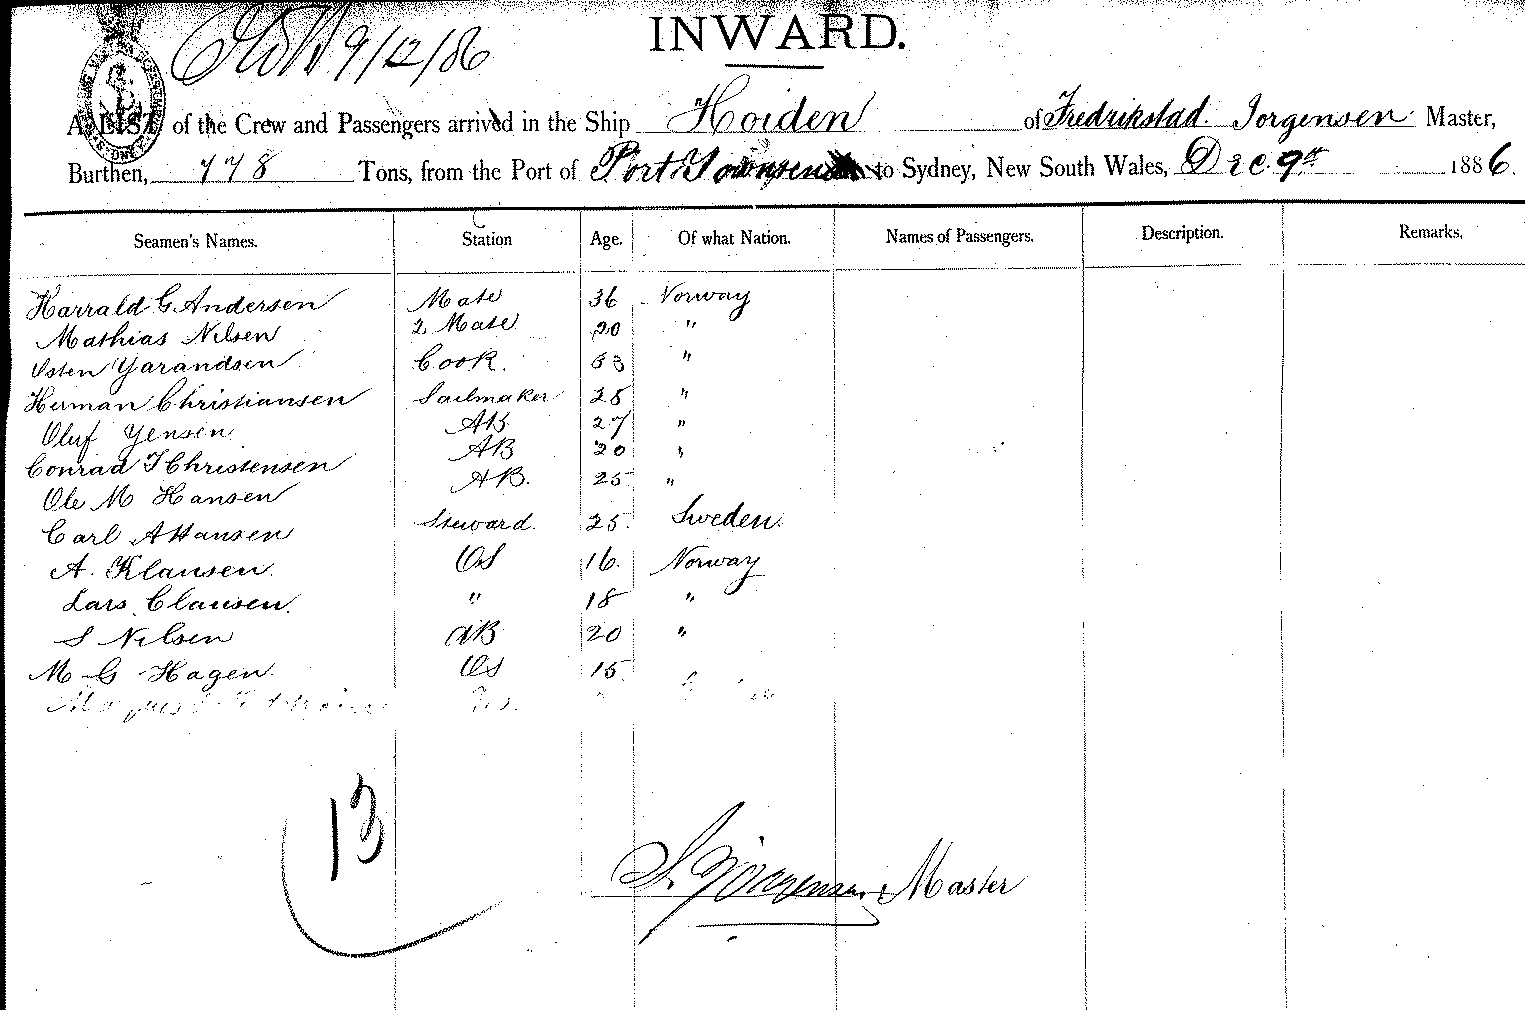 INWARD.
9/12/86
A LIST of the Crew and Passengers arrived in the Ship Hoiden of Fredrikstad. Jorgensen Master,
Burthen, 778 Tons, from the Port of Port Townsend to Sydney, New South Wales, Dec. 9th 1886.
Seamen's Names. Station Age. Of what Nation. Names of Passengers. Description. Remarks.
Harrald G Andersen Mate 36 Norway
Mathias Nilsen 2. Mate 20 "
Osten Yarandsen Cook. 33 "
Herman Christiansen Sailmaker 28 "
Oluf Yensen AB 27 "
Conrad T Christensen AB 20 "
Ole M Hansen AB. 25 "
Carl A Hansen Steward. 25. Sweden
A. Klausen OS 16. Norway
Lars Clausen. " 18 "
S Nilsen AB 20 "
M G Hagen OS 15
13
S. Jörgensen, Master